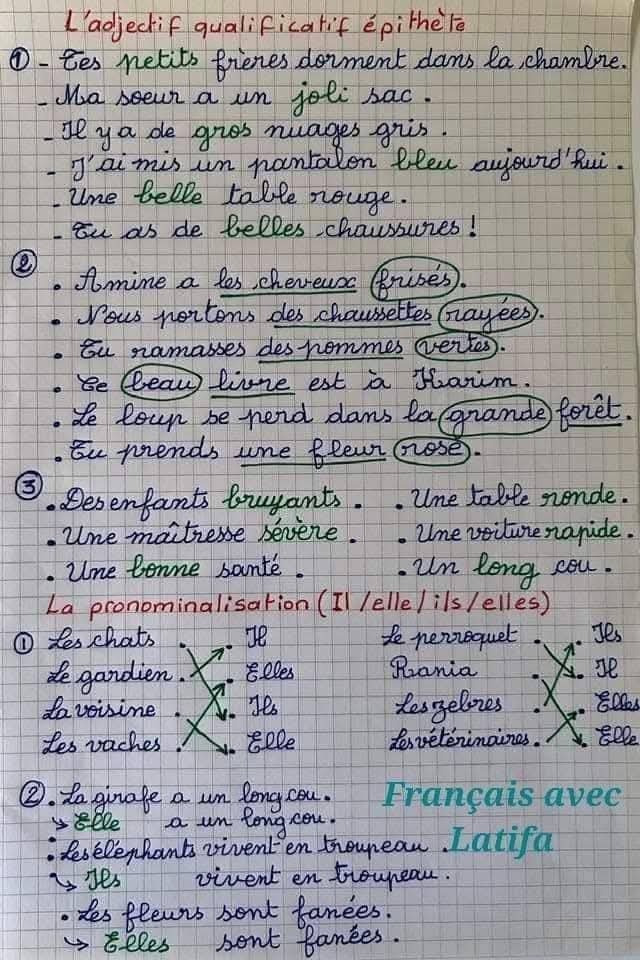 L'adjectif qualificatif épithète
① - Tes petits frères dorment dans la chambre.
- Ma soeur a un joli sac.
- Il y a de gros nuages gris.
- J'ai mis un pantalon bleu aujourd'hui.
- Une belle table rouge.
- Tu as de belles chaussures !
②
• Amine a les cheveux frisés.
• Nous portons des chaussettes rayées.
• Tu ramasses des pommes vertes.
• Ce beau livre est à Karim.
• Le loup se perd dans la grande forêt.
• Tu prends une fleur rose.
③ • Des enfants bruyants. • Une table ronde.
• Une maîtresse sévère. • Une voiture rapide.
• Une bonne santé. • Un long cou.
La pronominalisation (Il/elle/ils/elles)
① Les chats • • Il Le perroquet • • Ils
Le gardien • • Elles Rania • • Il
La voisine • • Ils Les zebres • • Elles
Les vaches • • Elle Les vétérinaires • • Elle
② • La girafe a un long cou.
↳ Elle a un long cou.
• Les éléphants vivent en troupeau.
↳ Ils vivent en troupeau.
• Les fleurs sont fanées.
↳ Elles sont fanées.
Français avec
Latifa